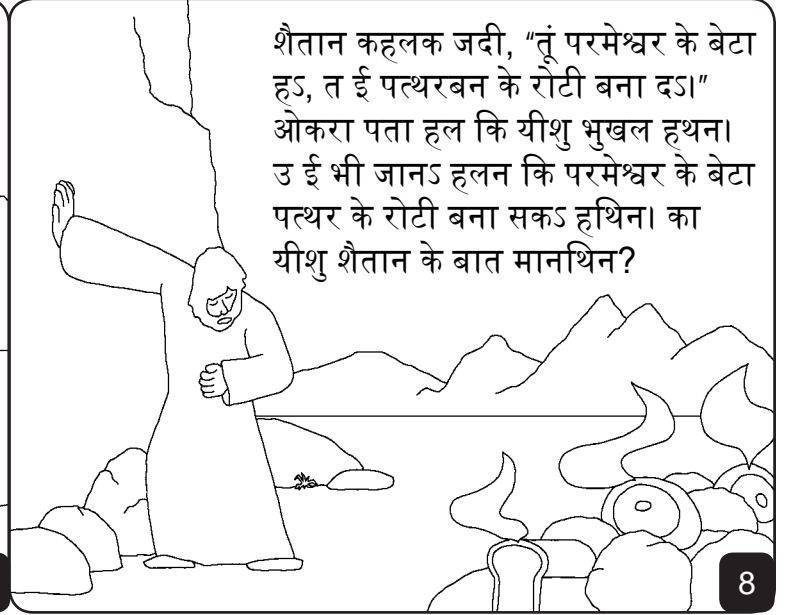 शैतान कहलक जदी, “तूं परमेश्वर के बेटा
हऽ, त ई पत्थरबन के रोटी बना दऽ।”
ओकरा पता हल कि यीशु भुखल हथन।
उ ई भी जानऽ हलन कि परमेश्वर के बेटा
पत्थर के रोटी बना सकऽ हथिन। का
यीशु शैतान के बात मानथिन?
8